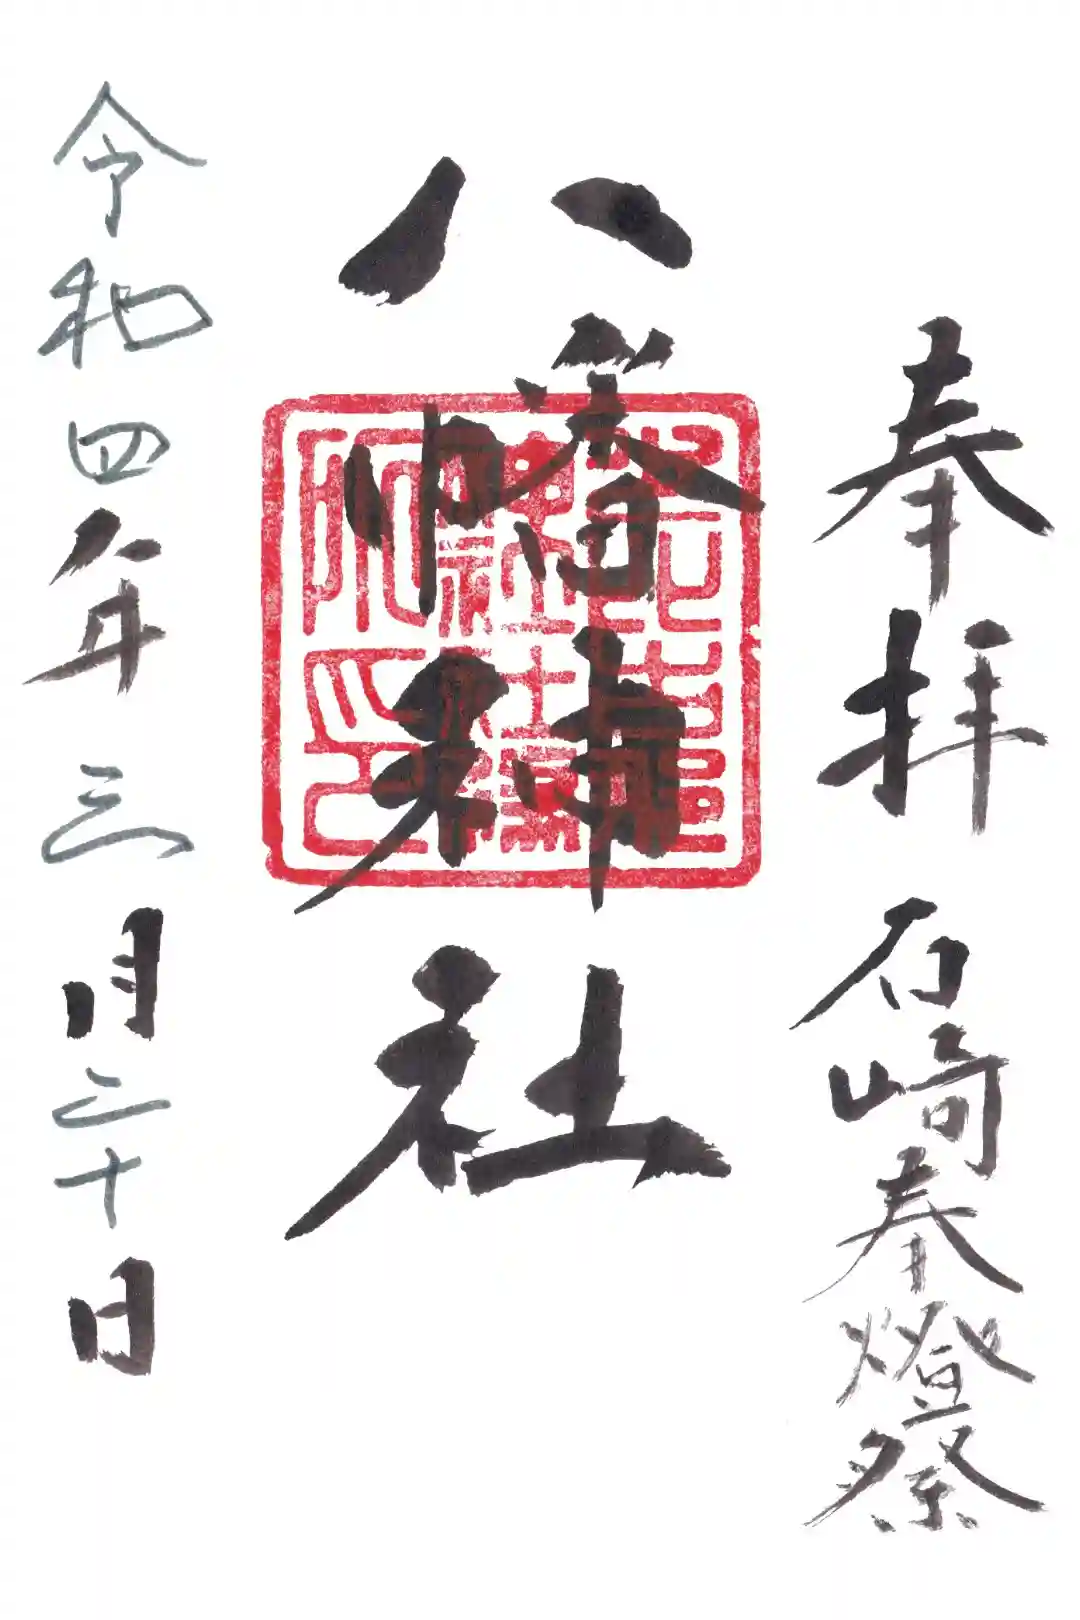 奉拝 石崎奉燈祭
八幡神社
令和四年三月二十日